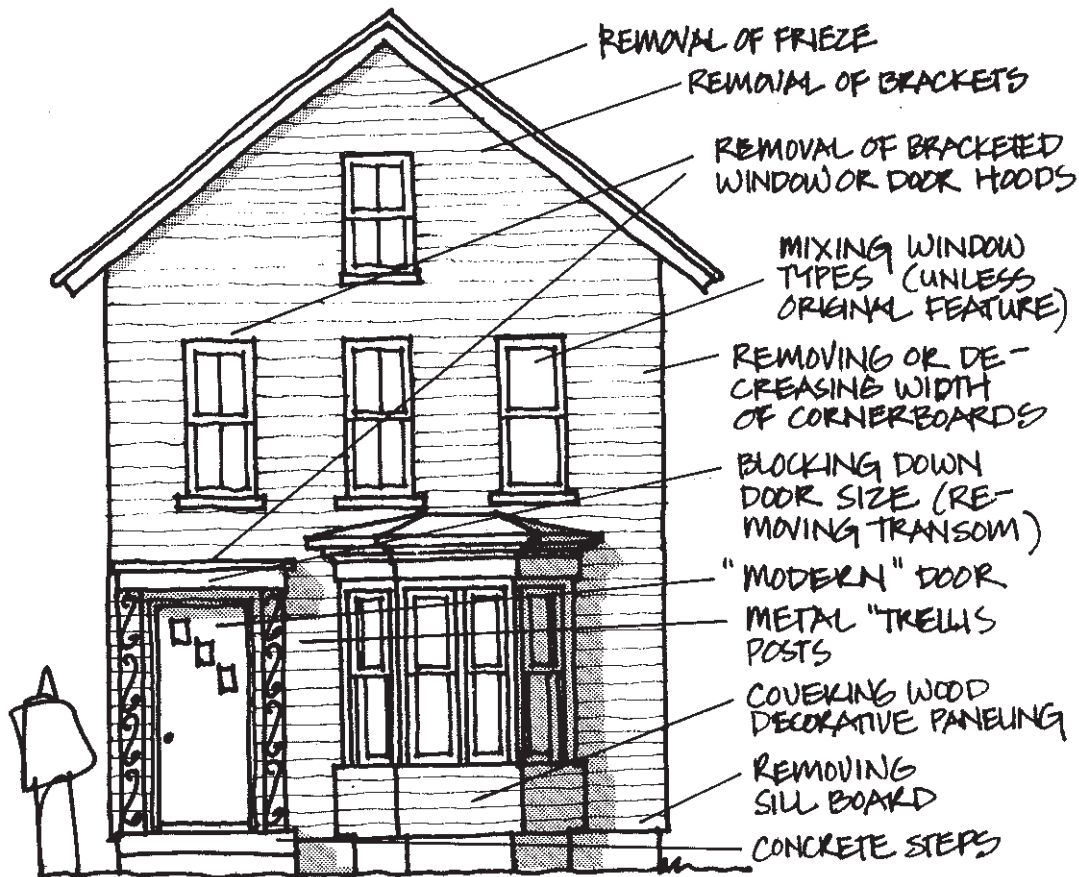 REMOVAL OF FRIEZE
REMOVAL OF BRACKETS
REMOVAL OF BRACKETED
WINDOW OR DOOR HOODS
MIXING WINDOW
TYPES (UNLESS
ORIGINAL FEATURE)
REMOVING OR DE-
CREASING WIDTH
OF CORNERBOARDS
BLOCKING DOWN
DOOR SIZE (RE-
MOVING TRANSOM)
"MODERN" DOOR
METAL "TRELLIS
POSTS
COVERING WOOD
DECORATIVE PANELING
REMOVING
SILL BOARD
CONCRETE STEPS